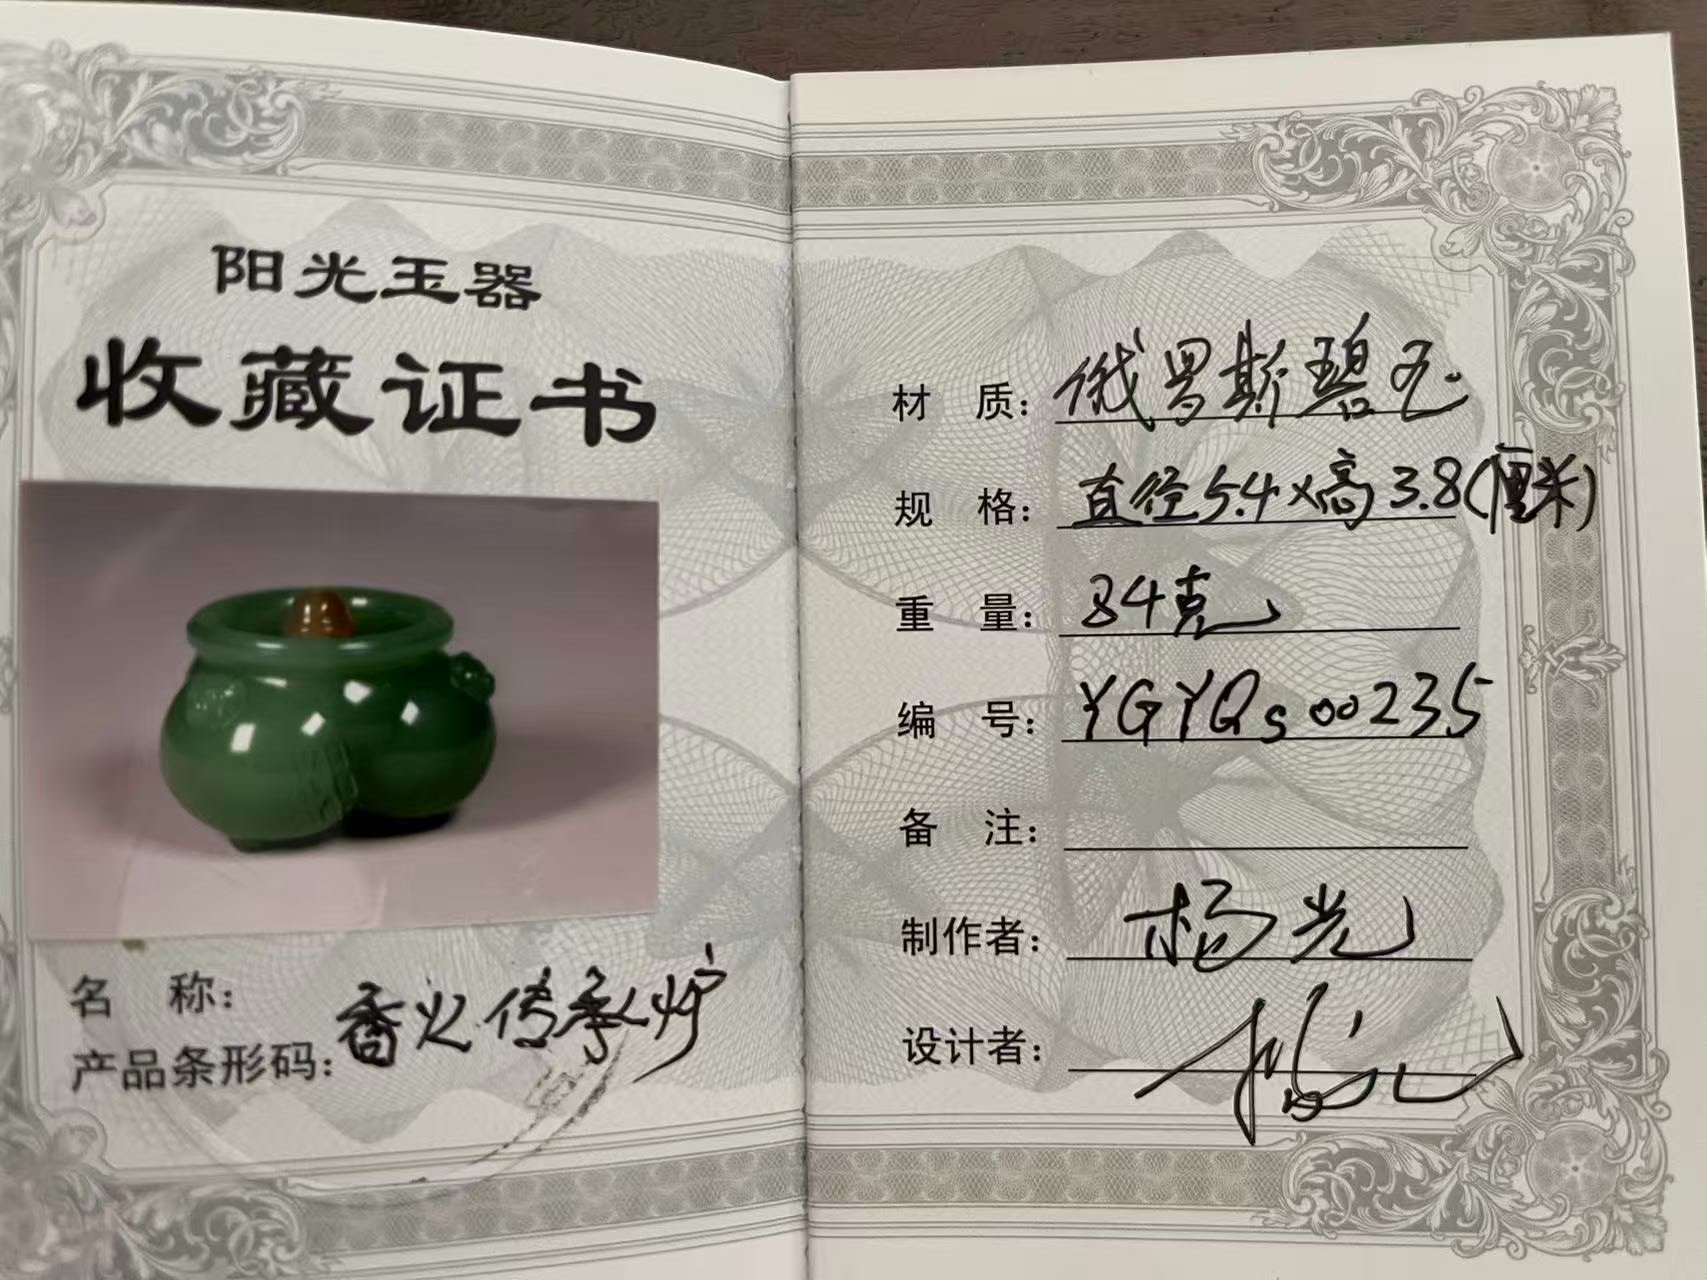 阳光玉器
收藏证书
名 称:
香火传承炉
产品条形码:
材 质: 俄罗斯碧玉
规 格: 直径5.4×高3.8(厘米)
重 量: 84克
编 号: YGYQs00235
备 注:
制作者: 杨光
设计者: 杨光